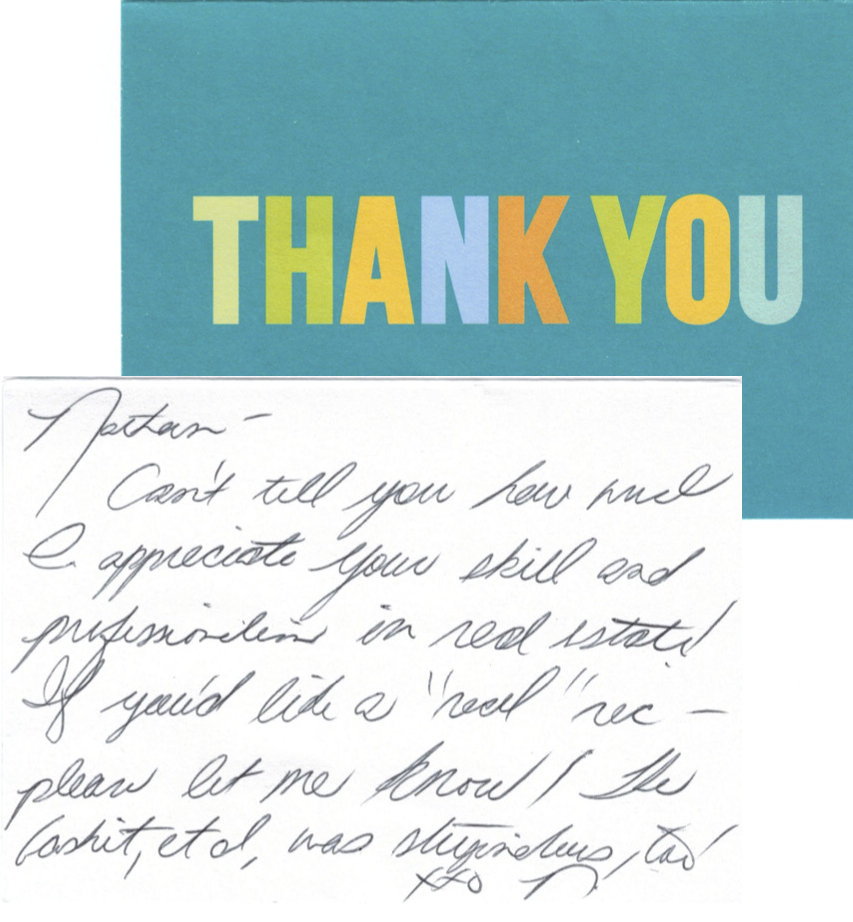 THANK YOU
Nathan -
Can't tell you how much
I appreciate your skill and
professionalism in real estate!
If you'd like a "real" rec -
please let me know! The
basket, et al, was stupendous, too!
xxo N.